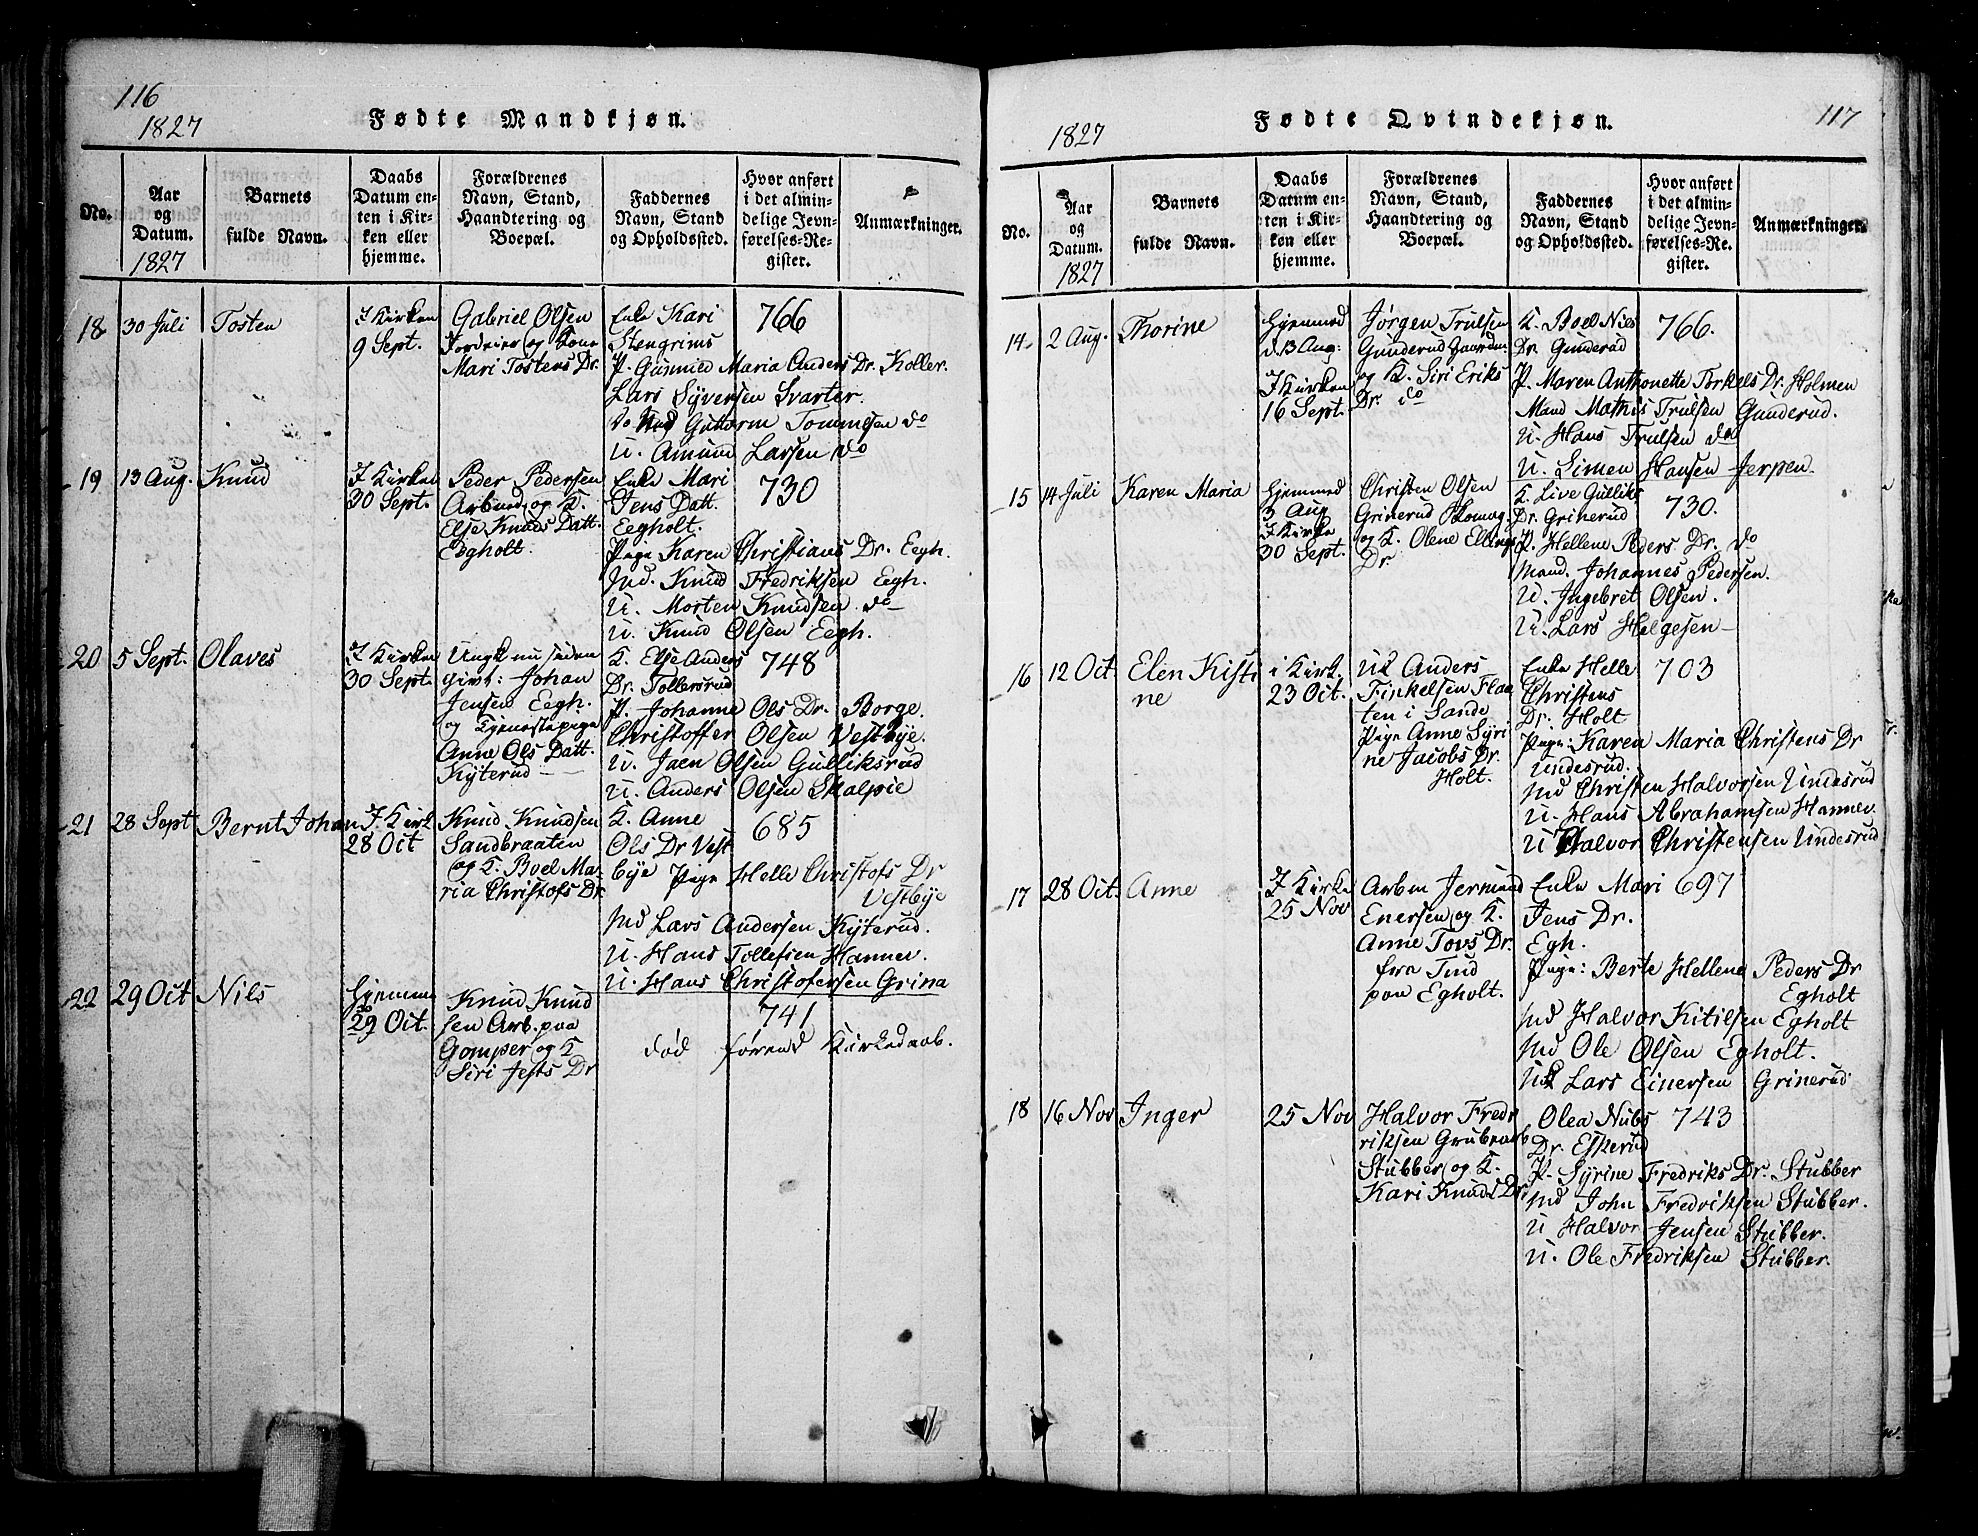 116
1827
Fødte Mandkjøn.
No.
Aar
og
Datum.
1827
Barnets
fulde Navn.
Daabs
Datum en-
ten i Kir-
ken eller
hjemme.
Forældrenes
Navn, Stand,
Haandtering og
Boepæl.
Faddernes
Navn, Stand
og Opholdssted.
Hvor anført
i det almin-
delige Jevn-
førelses-Re-
gister.
Anmærkninger.
18
30 Juli
Tosten
I Kirken
9 Sept.
Gabriel Olsen
og Kone
Mari Tostens Dr.
Enke Kari
Stengrims
P. Gunnild Maria Anders Dr. Koller.
Lars Syversen Svarter.
Guttorm Tommesen do
U. Amund Larsen do
766
19
13 Aug.
Knud
I Kirken
30 Sept.
Peder Pedersen
Arbmd og K.
Else Knuds Datt.
Egholt.
Enke Mari
Jens Datt.
Eegholt.
Pige Karen Christians Dr. Eegh.
Md. Knud Fredriksen Eegh.
U. Morten Knudsen do
U. Knud Olsen Eegh.
730
20
5 Sept.
Olaves
I Kirken
30 Sept.
Ungk nu siden
givt: Johan
Jensen Eegh.
og Tjenestepige
Anne Ols Datt.
Kyterud
K. Else Anders
Dr. Tollersrud
P. Johanne Ols Dr. Borge.
Christoffer Olsen Vestbye.
U. Jaen Olsen Gulliksrud
U. Anders Olsen Skalpie
748
21
28 Sept
Bernt Johan
I Kirk
28 Oct
Knud Knudsen
Sandbraaten
og K. Boel Ma-
ria Christofs Dr
K. Anne
Ols Dr Vest
bye Pige Helle Christofs Dr
Vestbye
Md Lars Andersen Kyterud.
U. Hans Tollefsen Hannev.
U. Hans Christofersen Grina
685
22
29 Oct
Nils
Hjemme
do
29 Oct.
Knud Knud
sen Arb. paa
Gomper og K
Siri Jests Dr
741
død førend Kirkedaab.
117
1827
Fødte Qvindekjøn.
No.
Aar
og
Datum.
1827
Barnets
fulde Navn.
Daabs
Datum en-
ten i Kir-
ken eller
hjemme.
Forældrenes
Navn, Stand,
Haandtering og
Boepæl.
Faddernes
Navn, Stand
og Opholdssted.
Hvor anført
i det almin-
delige Jevn-
førelses-Re-
gister.
Anmærkninger.
14
2 Aug.
Thorine
Hjemmed
d. 13 Aug:
I Kirken
16 Sept.
Jørgen Trulsen
Gunderud Gaardm.
og K. Siri Eriks
Dr. do
K. Boel Nils
Dr. Gunderud
P. Maren Anthonette Torkels Dr. Holmen
Mand Mathis Trulsen Gunderud.
U. Hans Trulsen do
U. Simen Hansen Jerpen.
766.
15
14 Juli
Karen Maria
Hjemmed
3 Aug
I Kirke
30 Sept.
Christen Olsen
Grinerud Skomag.
og K. Olene Ellings
Dr.
K. Live Gulliks
Dr. Grinerud
P. Hellene Peders Dr. do
Mand. Johannes Pedersen.
U. Ingebret Olsen.
U. Lars Helgesen
730.
16
12 Oct
Elen Kisti
ne
i Kirk.
23 Oct.
Uk Anders
Finkelsen Flaa
ten i Sande
Pige Anne Syri
ne Jacobs Dr.
Holt.
Enke Helle
Christens
Dr. Holt
Pige: Karen Maria Christens Dr
Undesrud.
Md Christen Halvorsen Undesrud
U. Hans Abrahamsen Hannev.
U Halvor Christensen Undesrud
703
17
28 Oct.
Anne
I Kirke
25 Nov
Arbm Jermund
Enersen og K.
Anne Tovs Dr.
fra Tind
paa Egholt.
Enke Mari
Jens Dr.
Egh.
Pige: Berte Hellene Peders Dr
Egholt
Md Halvor Kitilsen Egholt
Md Ole Olsen Egholt.
Lars Einersen Grinerud
697
18
16 Nov
Inger
25 Nov
Halvor Fred
riksen Grubearb
Stubber og K.
Kari Knuds Dr
Olea Nubs
Dr. Eskerud
P. Syrine Fredriks Dr. Stubber
Md John Fredriksen Stubber.
U Halvor Jensen Stubber.
U. Ole Fredriksen Stubber.
743